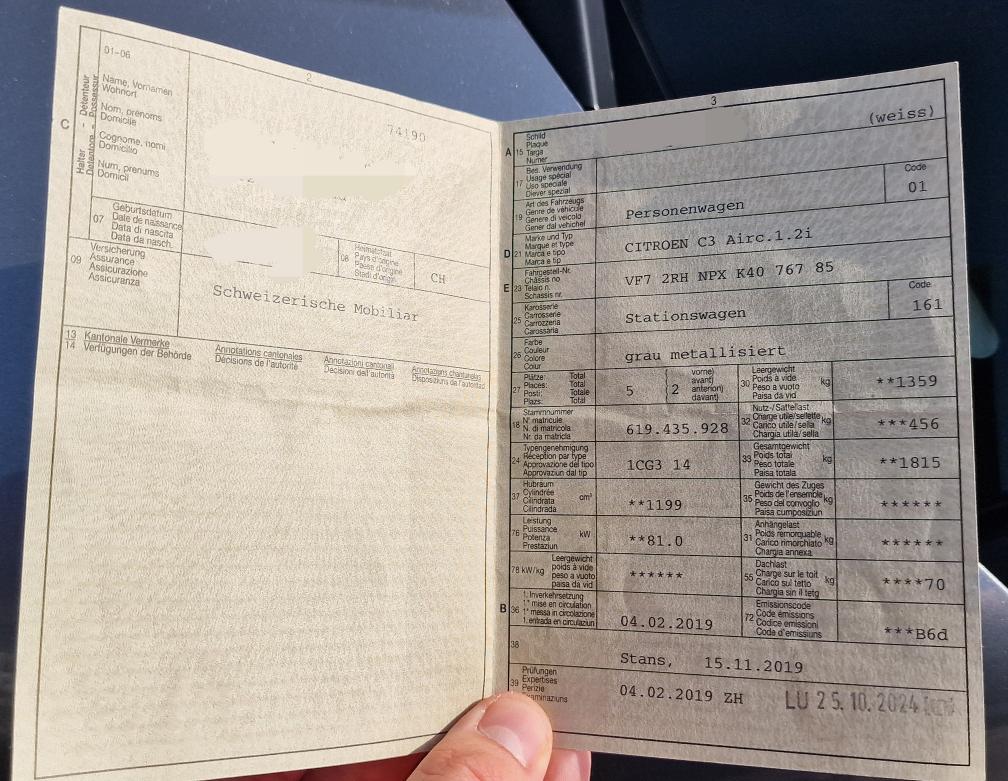 2
01-06
Halter - Détenteur
Detentore - Possessur
C
Name, Vornamen
Wohnort
Nom, prénoms
Domicile
Cognome, nomi
Domicilio
Num, prenums
Domicil
74190
07
Geburtsdatum
Date de naissance
Data di nascita
Data da nasch.
08
Heimatstaat
Pays d'origine
Paese d'origine
Stadi d'origin
CH
09
Versicherung
Assurance
Assicurazione
Assicuranza
Schweizerische Mobiliar
13 Kantonale Vermerke
14 Verfügungen der Behörde
Annotations cantonales
Décisions de l'autorité
Annotazioni cantonali
Decisioni dell'autorità
Annotaziuns chantunalas
Disposiziuns da l'autoritad
3
A 15
Schild
Plaque
Targa
Numer
(weiss)
17
Bes. Verwendung
Usage spécial
Uso speciale
Diever spezial
19
Art des Fahrzeugs
Genre de véhicule
Genere di veicolo
Gener dal vehichel
Personenwagen
Code
01
D 21
Marke und Typ
Marque et type
Marca e tipo
Marca e tip
CITROEN C3 Airc.1.2i
E 23
Fahrgestell-Nr.
Châssis no
Telaio n.
Schassis nr.
VF7 2RH NPX K40 767 85
25
Karosserie
Carrosserie
Carrozzeria
Carossaria
Stationswagen
Code
161
26
Farbe
Couleur
Colore
Colur
grau metallisiert
27
Plätze: Total
Places: Total
Posti: Totale
Plazs: Total
5
vorne)
avant)
anteriori)
davant)
2
30
Leergewicht
Poids à vide
Peso a vuoto
Paisa da vid
kg
**1359
18
Stammnummer
N° matricule
N. di matricola
Nr. da matricla
619.435.928
32
Nutz-/Sattellast
Charge utile/sellette
Carico utile/sella
Chargia utila/sella
kg
***456
24
Typengenehmigung
Réception par type
Approvazione del tipo
Approvaziun dal tip
1CG3 14
33
Gesamtgewicht
Poids total
Peso totale
Paisa totala
kg
**1815
37
Hubraum
Cylindrée
Cilindrata
Cilindrada
cm³
**1199
35
Gewicht des Zuges
Poids de l'ensemble
Peso del convoglio
Paisa cumposiziun
kg
******
76
Leistung
Puissance
Potenza
Prestaziun
kW
**81.0
31
Anhängelast
Poids remorquable
Carico rimorchiato
Chargia annexa
kg
******
78 kW/kg
Leergewicht
poids à vide
peso a vuoto
paisa da vid
******
55
Dachlast
Charge sur le toit
Carico sul tetto
Chargia sin il tetg
kg
****70
B 36
1. Inverkehrsetzung
1re mise en circulation
1a messa in circolazione
1. entrada en circulaziun
04.02.2019
72
Emissionscode
Code émissions
Codice emissioni
Code d'emissiuns
***B6d
38
Stans, 15.11.2019
39
Prüfungen
Expertises
Perizie
Examinaziuns
04.02.2019 ZH
LU 25.10.2024